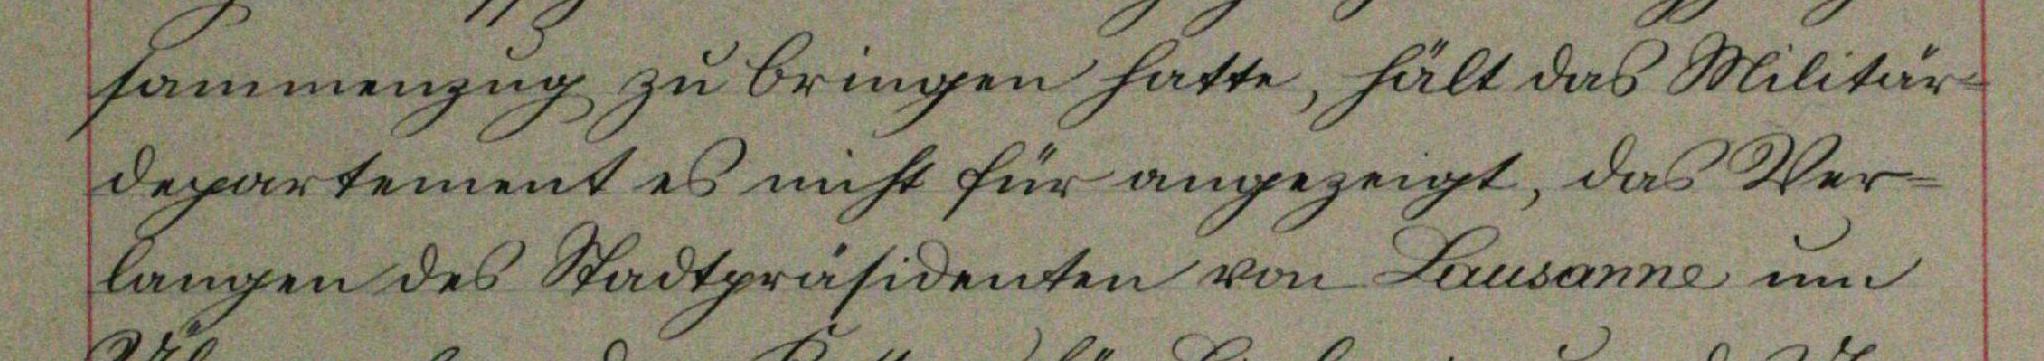 sammenzug zu bringen hatte, hält das Militär-
departement es nicht für angezeigt, das Ver-
langen des Stadtpräsidenten von Lausanne um